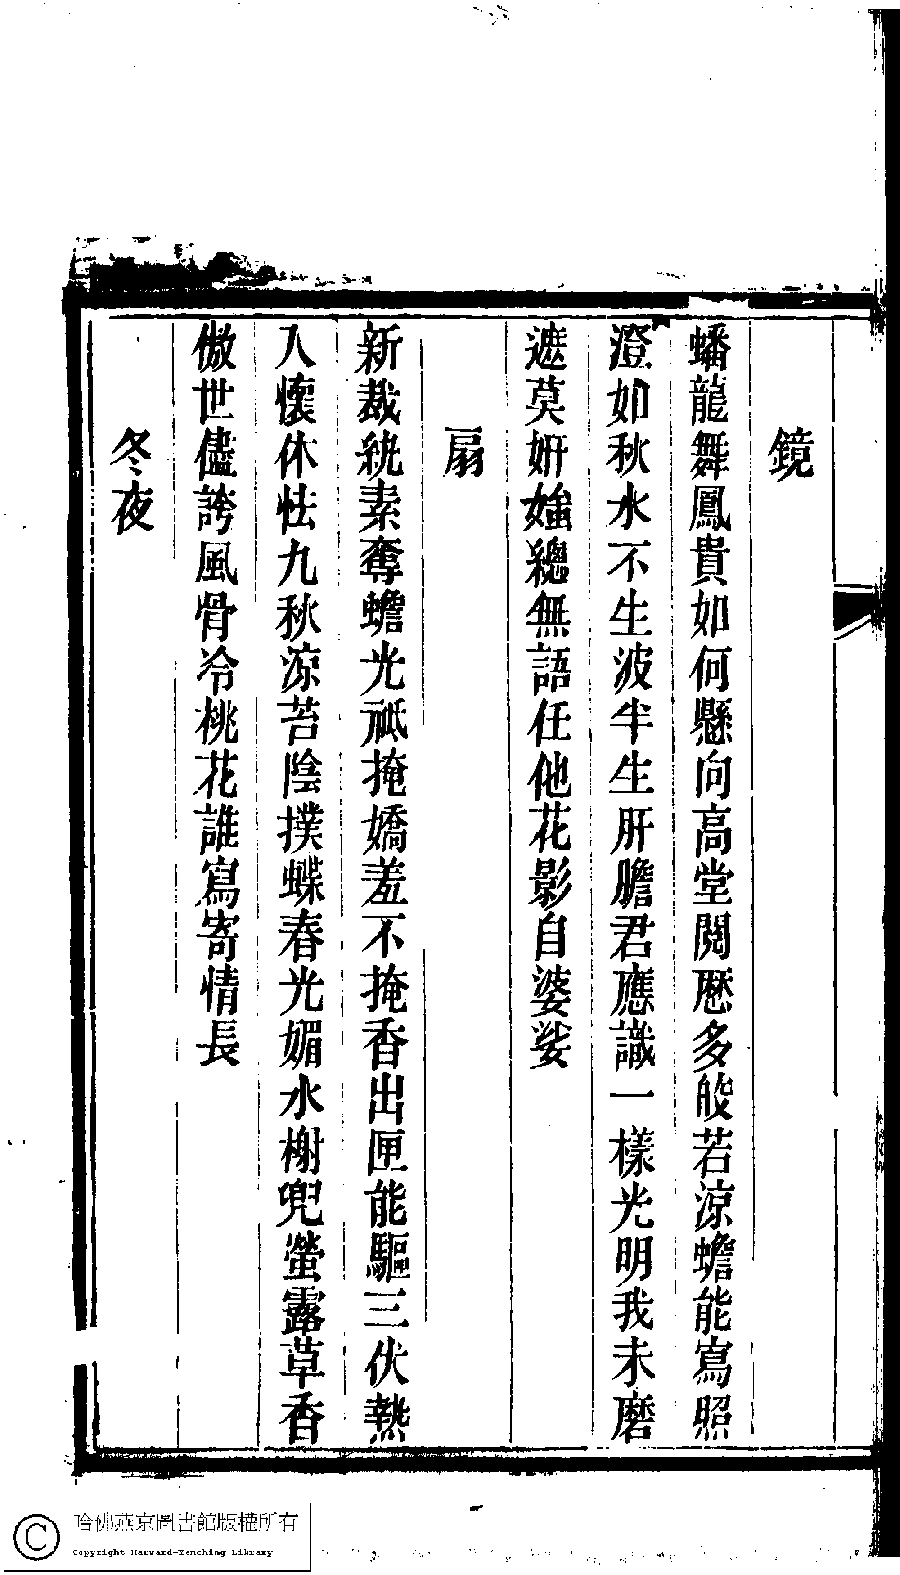 鏡
蟠龍舞鳳貴如何懸向高堂閱厯多皎若涼蟾能寫照
澄如秋水不生波半生肝膽君應識一樣光明我未磨
遮莫妍媸總無語任他花影自婆娑
扇
新裁紈素奪蟾光祗掩嬌羞不掩香出匣能驅三伏熱
入懷休怯九秋涼苔陰撲蝶春光媚水榭兜螢露草香
傲世儘誇風骨冷桃花誰寫寄情長
冬夜
哈佛燕京圖書館版權所有
Copyright Harvard-Yenching Library